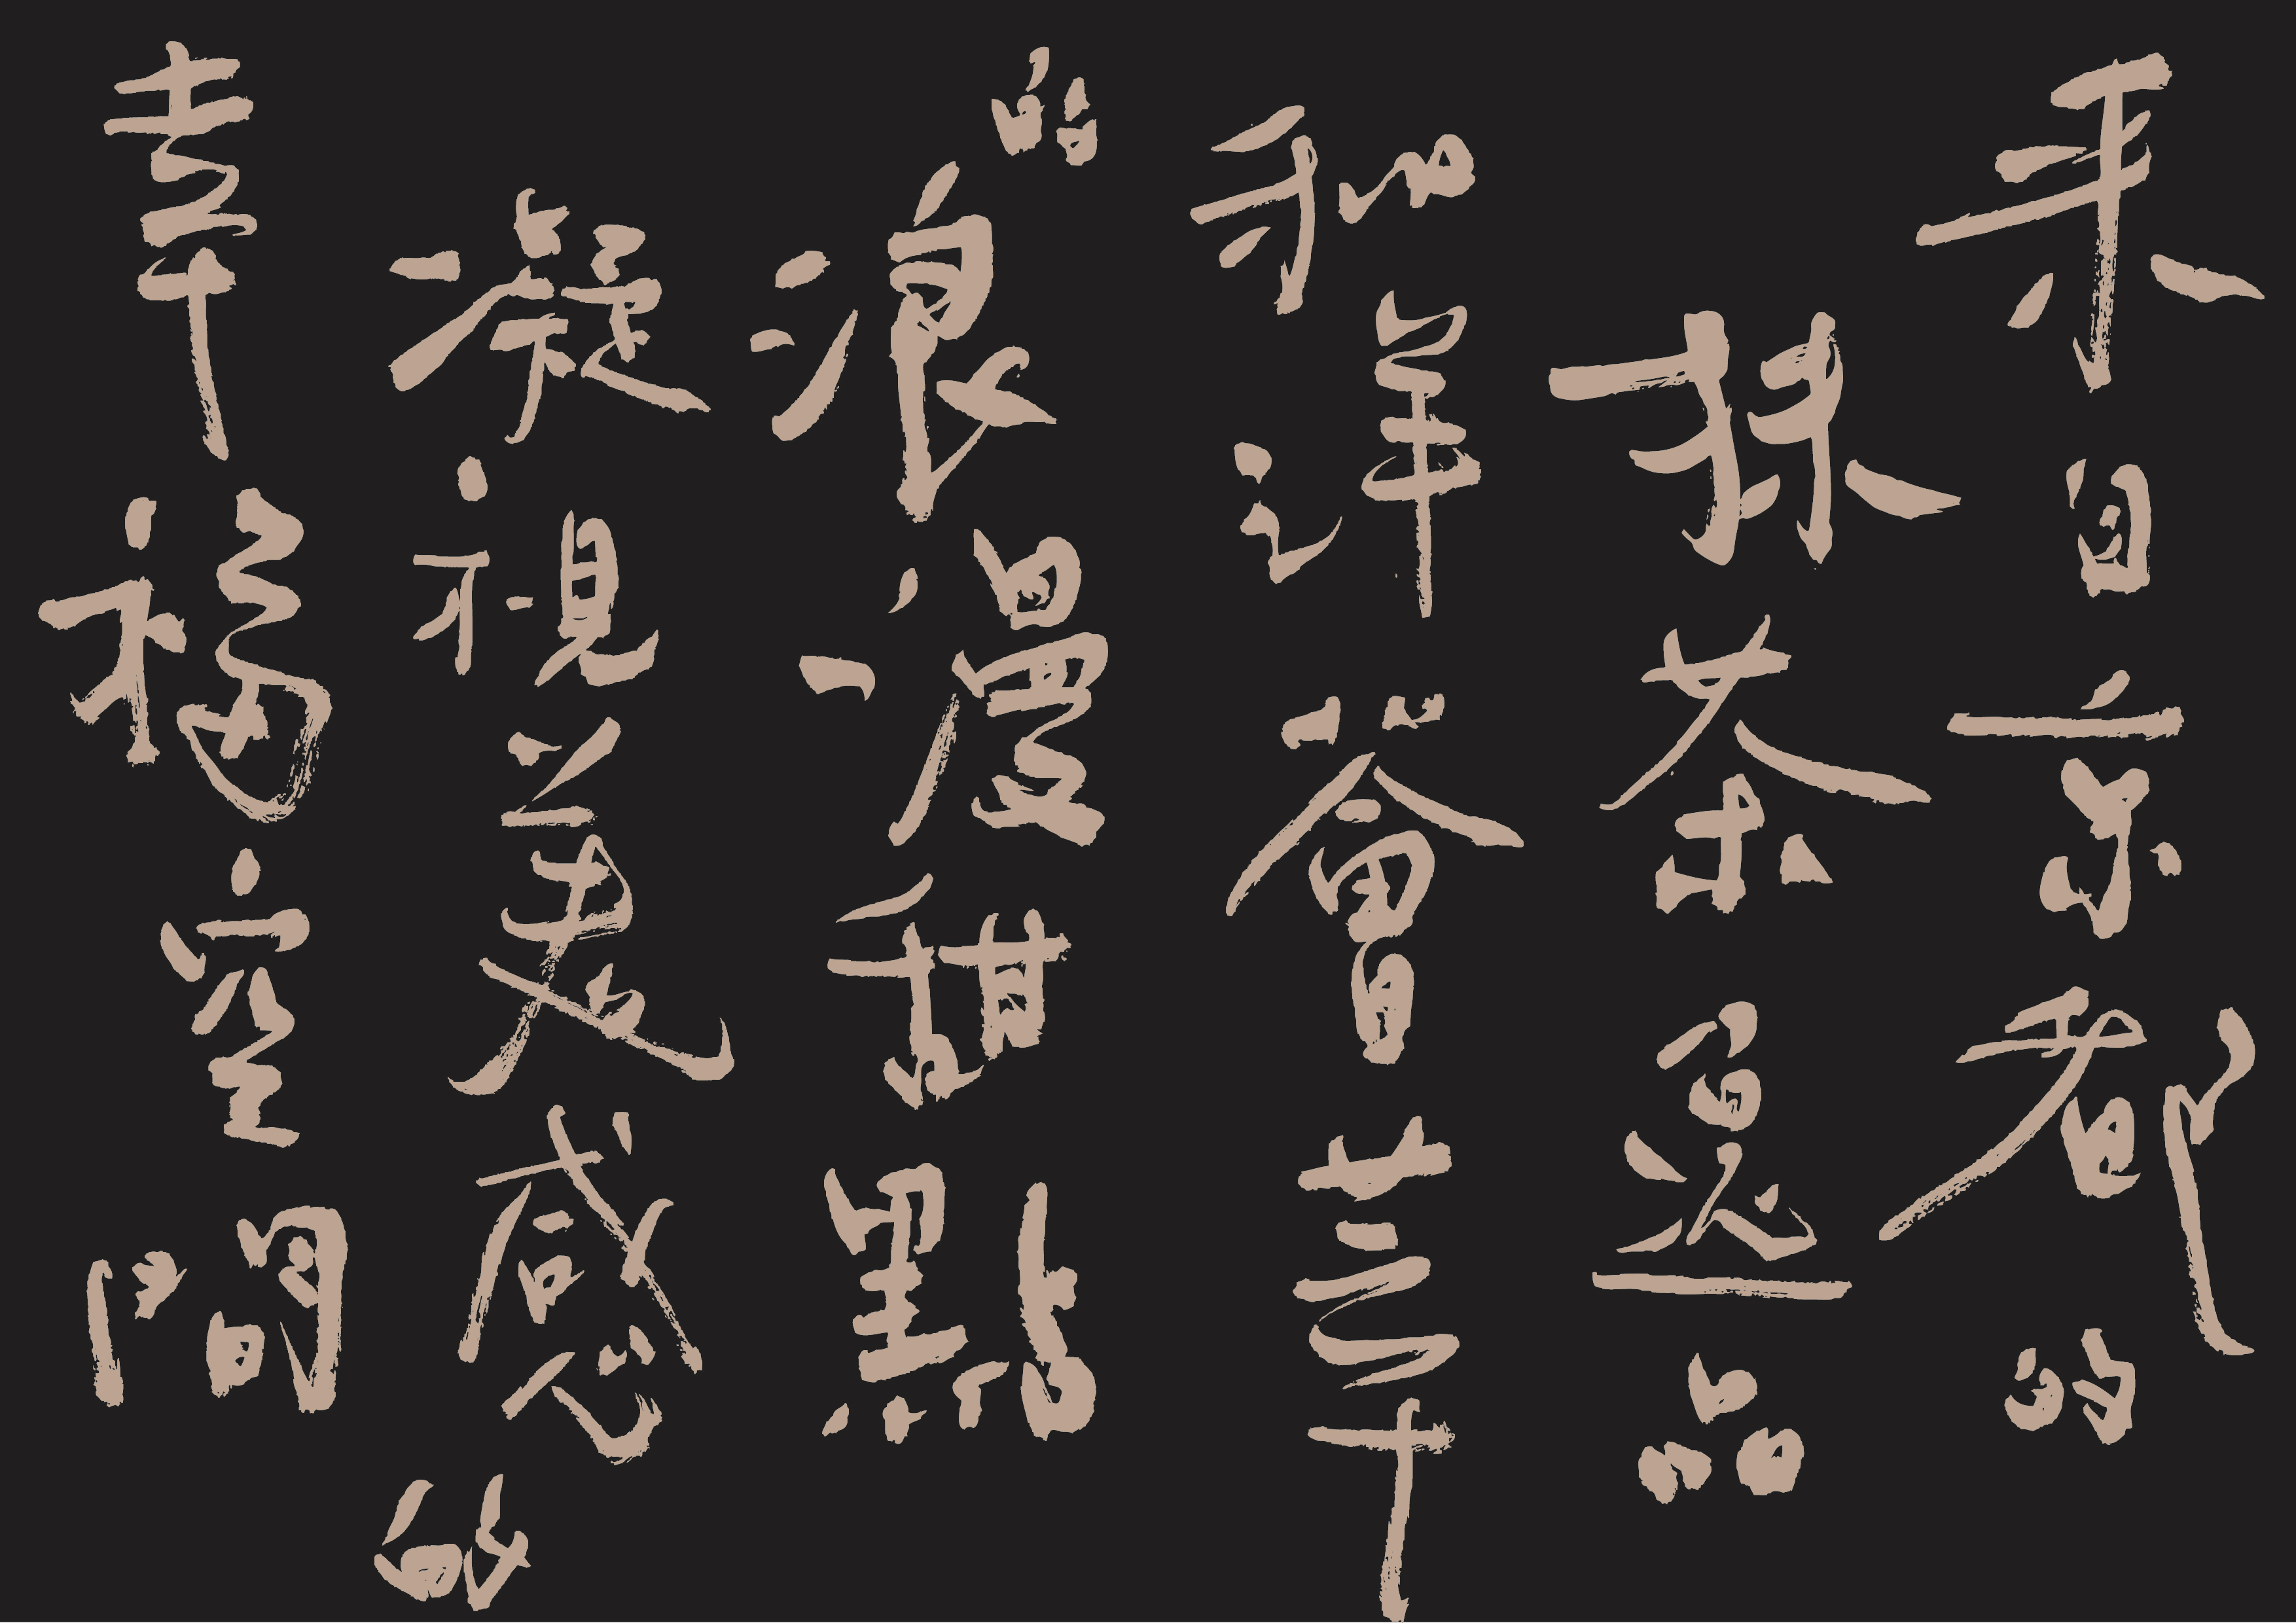 来自京都的
抹茶逸品
和洋薈萃
的浪漫甜點
凝視之美感的
幸福空間